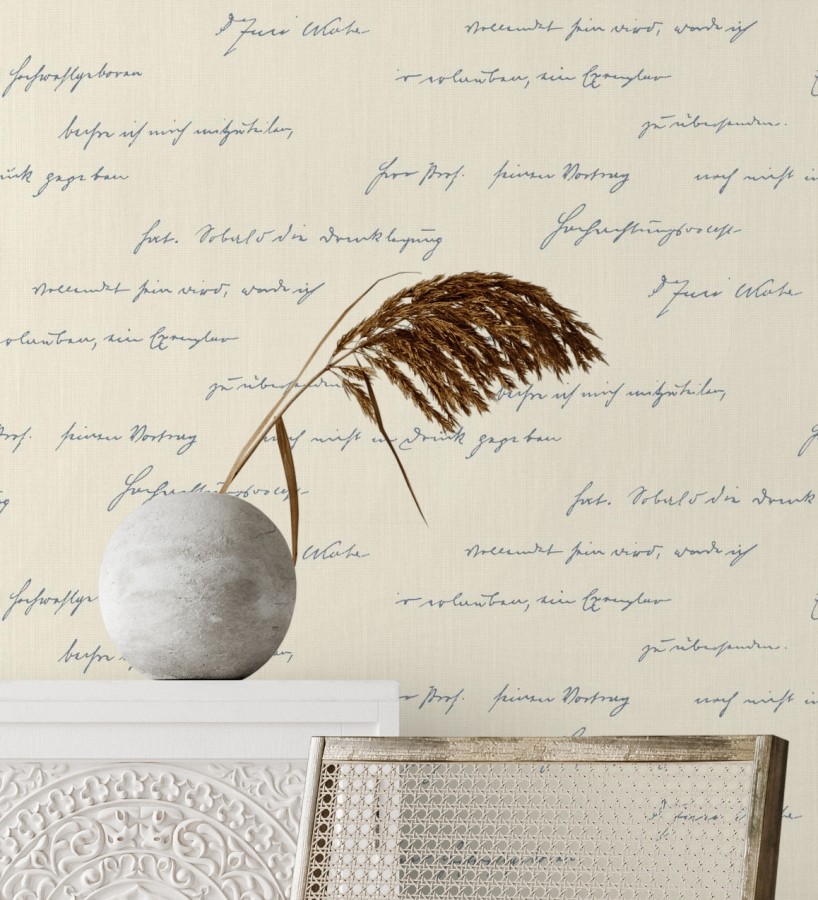 vollendet sein wird, werde ich
Hochwohlgeboren erlauben, ein Exemplar
beehre ich mich mitzuteilen, zu übersenden.
uck gegeben Herr Prof. seinen Vortrag noch nicht in
hat. Sobald die Drucklegung Hochachtungsvollst
vollendet sein wird, werde ich
erlauben, ein Exemplar
zu übersenden beehre ich mich mitzuteilen,
Prof. seinen Vortrag noch nicht in Druck gegeben
Hochachtungsvollst hat. Sobald die Druck
vollendet sein wird, werde ich
Hochwohlge erlauben, ein Exemplar
beehre zu übersenden.
Prof. seinen Vortrag noch nicht in